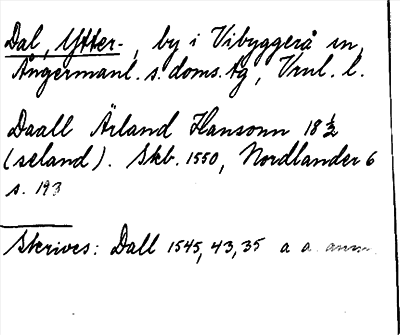 Dal, Ytter-, by i Vibyggerå sn,
Ångermanl. s. doms. tg, Vnl. l.
Daall Ärland Hansonn 18 ½
(seland). Skb. 1550, Nordlander 6
s. 193
Skrives: Dall 1545, 43, 35 a a